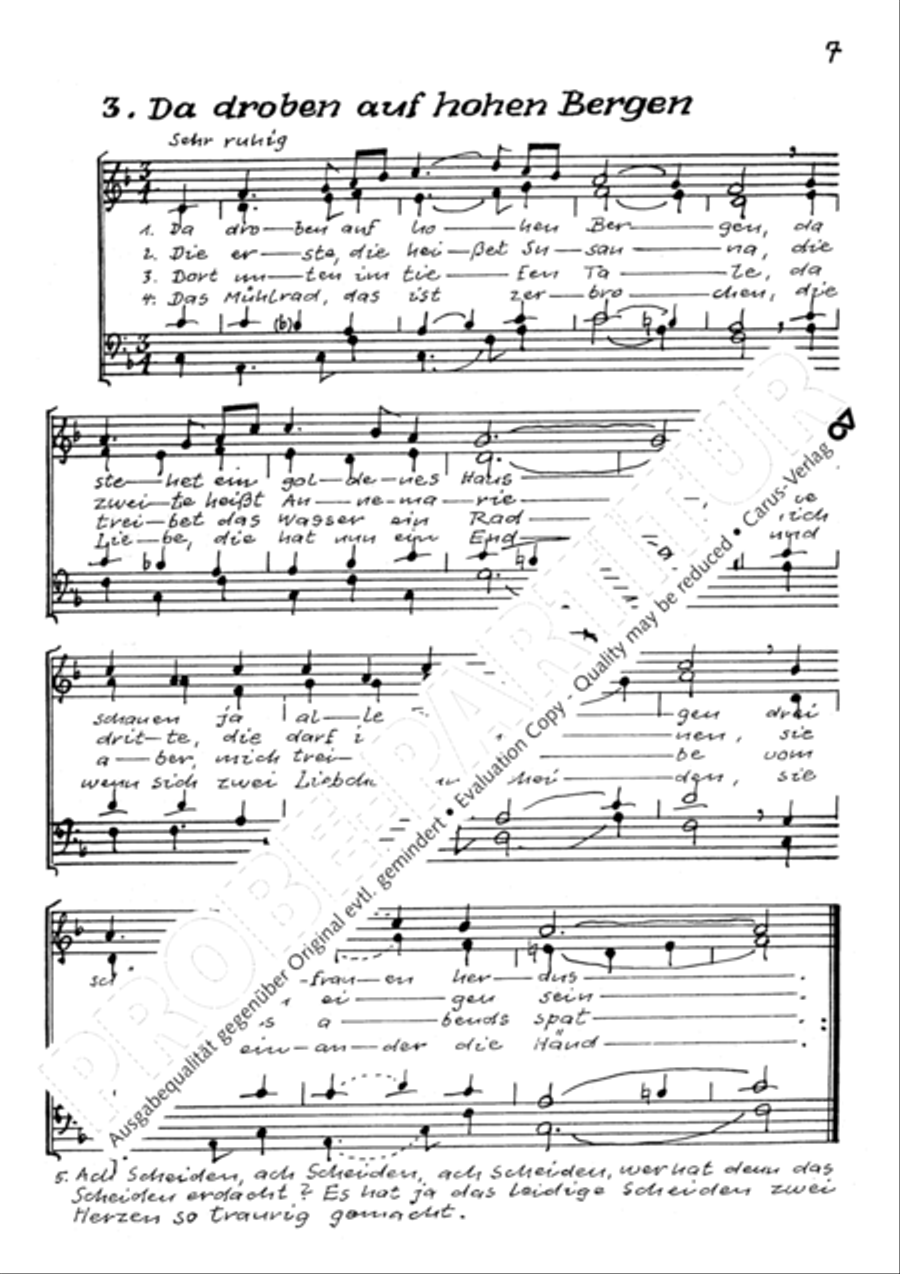 7
3. Da droben auf hohen Bergen
Sehr ruhig
1. Da dro—ben auf ho—hen Ber—gen, da
2. Die er—ste, die hei—ßet Su—san—na, die
3. Dort un—ten im tie—fen Ta—le, da
4. Das Mühlrad, das ist zer—bro—chen, die
(b)
ste—het ein gol—de—nes Haus
zwei—te heißt An—ne-ma—rie
trei—bet das Wasser ein Rad ich
Lie—be, die hat nun ein End und
schauen ja al—le gen drei
drit—te, die darf i nen, sie
a—ber, mich trei be vom
wenn sich zwei Liebch hei—den, sie
sch -frau—en her—aus.
ei—gen sein.
s a—bends spat.
ein—an—der die Händ.
5. Ach Scheiden, ach Scheiden, ach Scheiden, wer hat denn das
Scheiden erdacht? Es hat ja das leidige Scheiden zwei
Herzen so traurig gemacht.
PROBEPARTITUR
Ausgabequalität gegenüber Original evtl. gemindert • Evaluation Copy - Quality may be reduced • Carus-Verlag